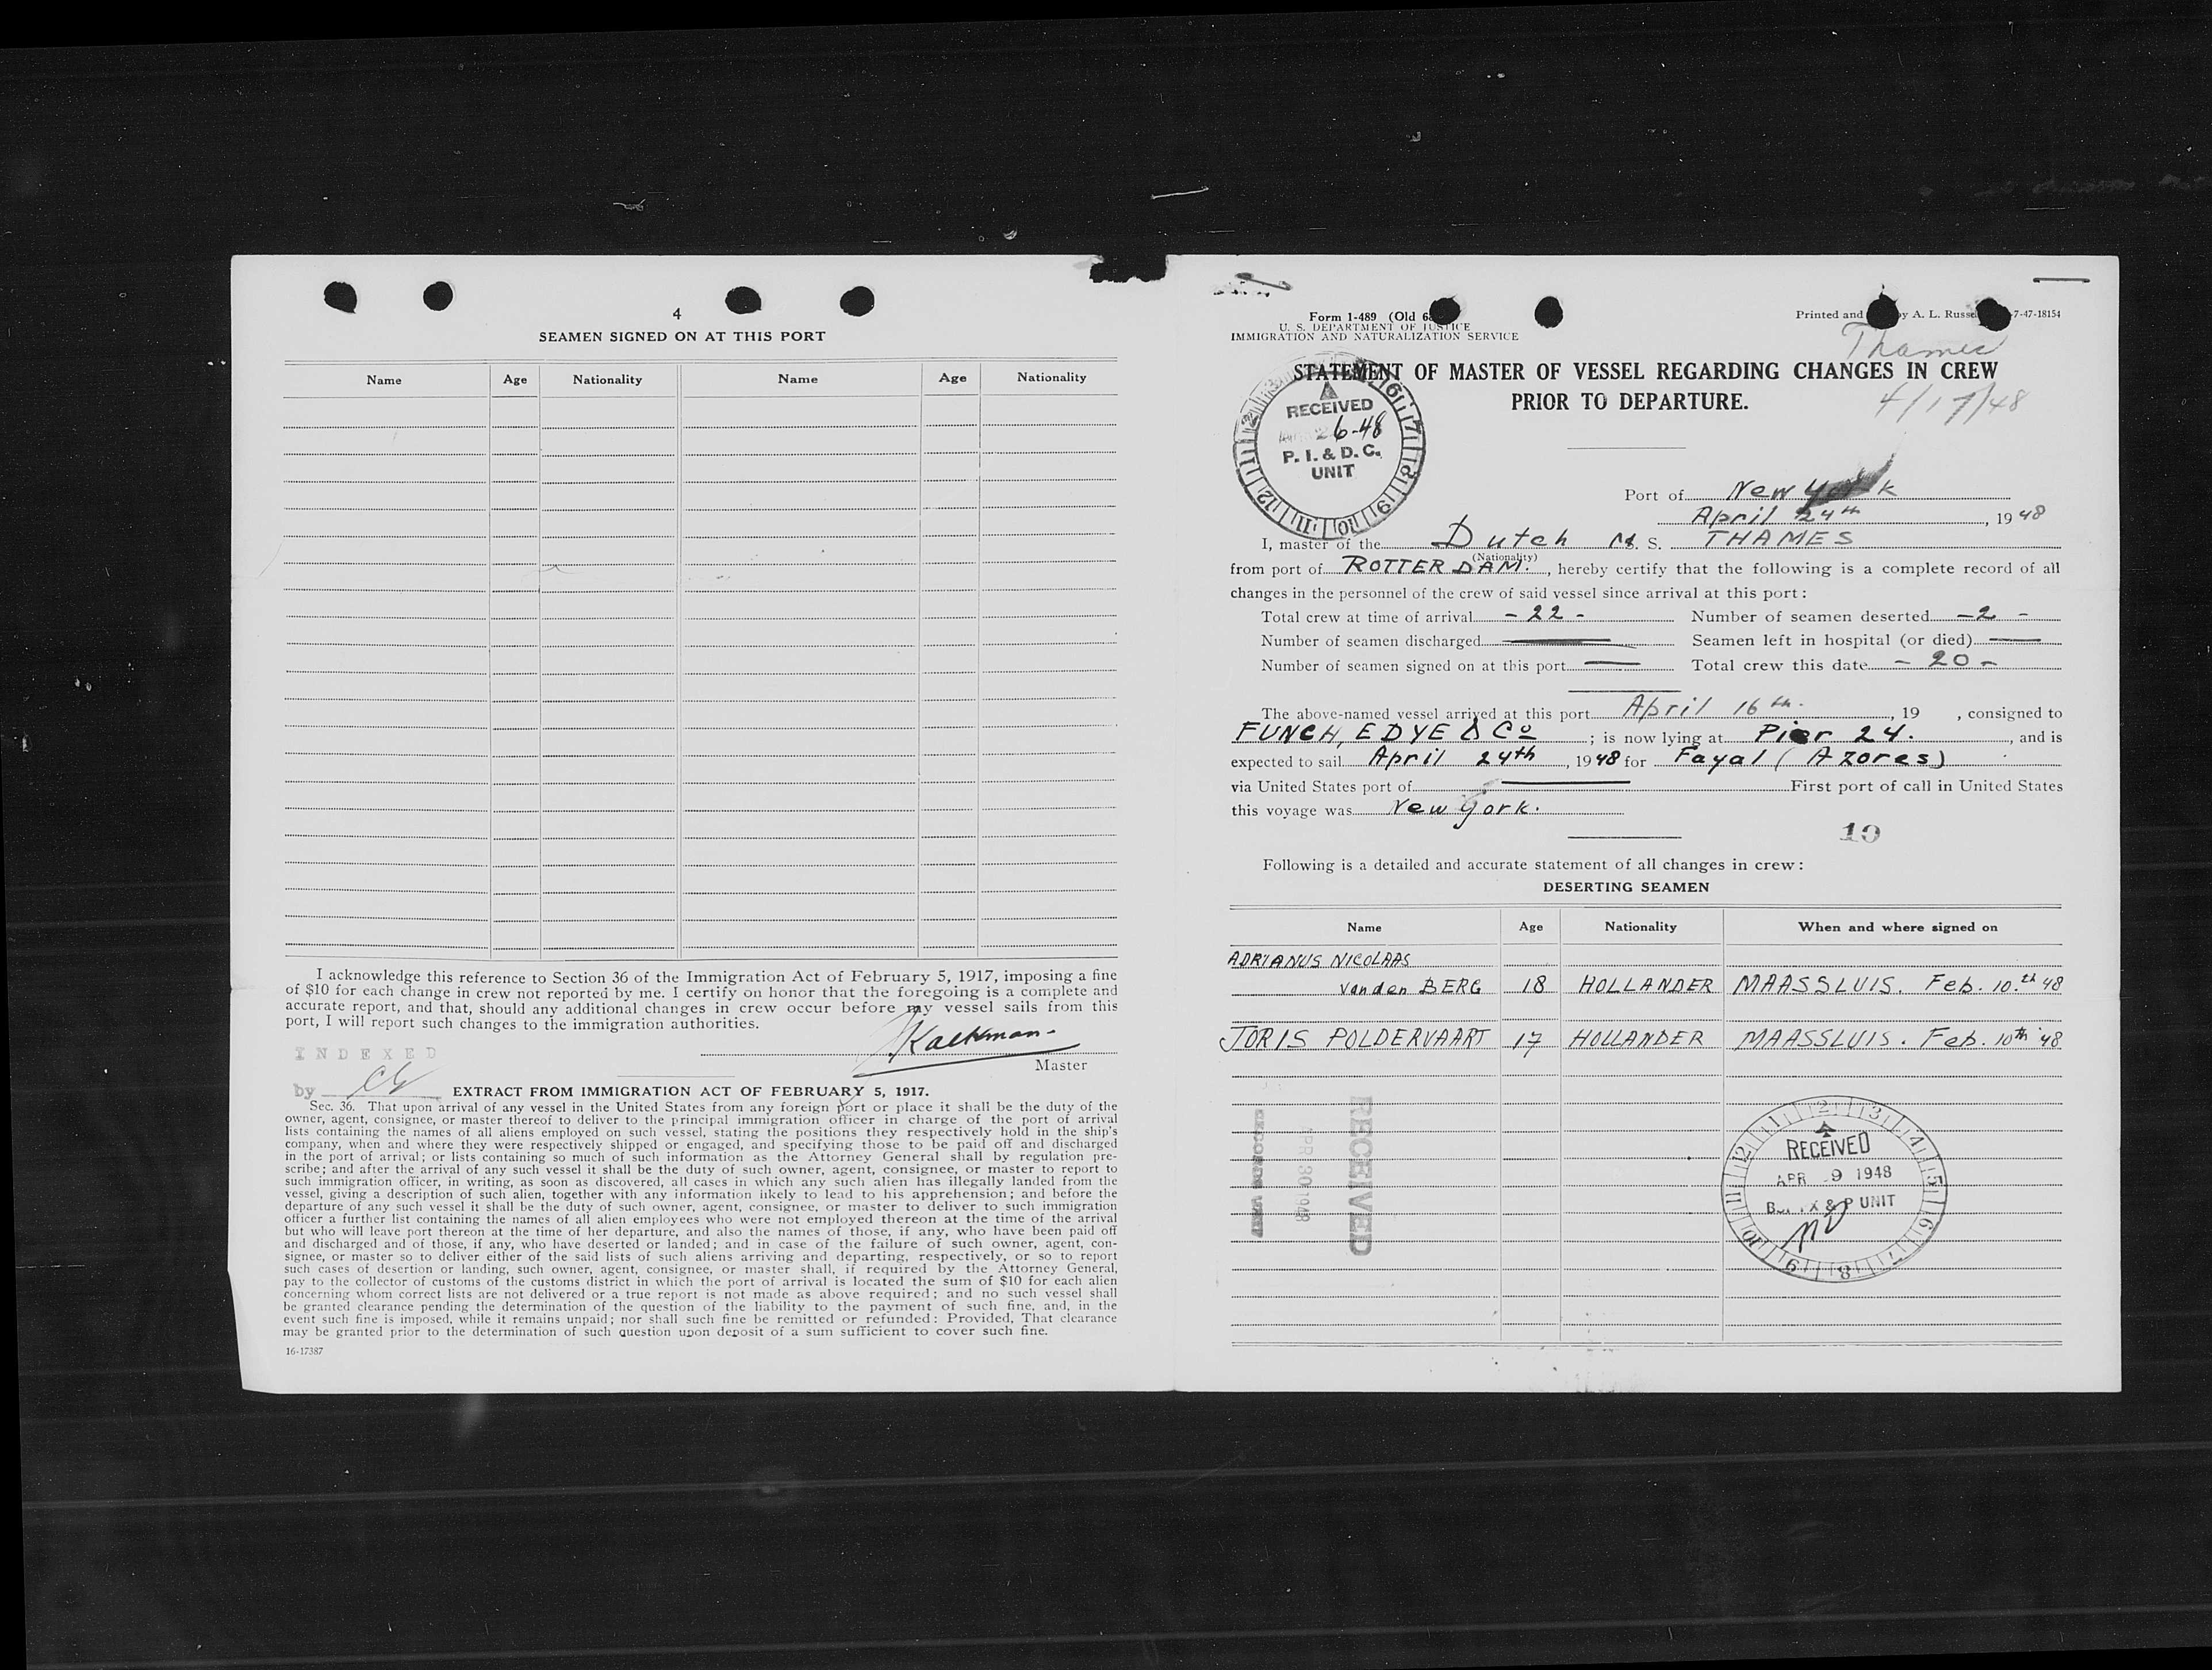 4
SEAMEN SIGNED ON AT THIS PORT
Name Age Nationality Name Age Nationality
I acknowledge this reference to Section 36 of the Immigration Act of February 5, 1917, imposing a fine
of $10 for each change in crew not reported by me. I certify on honor that the foregoing is a complete and
accurate report, and that, should any additional changes in crew occur before my vessel sails from this
port, I will report such changes to the immigration authorities.
INDEXED
by
Master
EXTRACT FROM IMMIGRATION ACT OF FEBRUARY 5, 1917.
Sec. 36. That upon arrival of any vessel in the United States from any foreign port or place it shall be the duty of the
owner, agent, consignee, or master thereof to deliver to the principal immigration officer in charge of the port of arrival
lists containing the names of all aliens employed on such vessel, stating the positions they respectively hold in the ship's
company, when and where they were respectively shipped or engaged, and specifying those to be paid off and discharged
in the port of arrival; or lists containing so much of such information as the Attorney General shall by regulation pre-
scribe; and after the arrival of any such vessel it shall be the duty of such owner, agent, consignee, or master to report to
such immigration officer, in writing, as soon as discovered, all cases in which any such alien has illegally landed from the
vessel, giving a description of such alien, together with any information likely to lead to his apprehension; and before the
departure of any such vessel it shall be the duty of such owner, agent, consignee, or master to deliver to such immigration
officer a further list containing the names of all alien employees who were not employed thereon at the time of the arrival
but who will leave port thereon at the time of her departure, and also the names of those, if any, who have been paid off
and discharged and of those, if any, who have deserted or landed; and in case of the failure of such owner, agent, con-
signee, or master so to deliver either of the said lists of such aliens arriving and departing, respectively, or so to report
such cases of desertion or landing, such owner, agent, consignee, or master shall, if required by the Attorney General,
pay to the collector of customs of the customs district in which the port of arrival is located the sum of $10 for each alien
concerning whom correct lists are not delivered or a true report is not made as above required; and no such vessel shall
be granted clearance pending the determination of the question of the liability to the payment of such fine, and, in the
event such fine is imposed, while it remains unpaid; nor shall such fine be remitted or refunded: Provided, That clearance
may be granted prior to the determination of such question upon deposit of a sum sufficient to cover such fine.
16-17387
Form 1-489 (Old 6
U. S. DEPARTMENT OF JUSTICE
IMMIGRATION AND NATURALIZATION SERVICE
Printed and by A. L. Russe 7-47-18154
Thames
STATEMENT OF MASTER OF VESSEL REGARDING CHANGES IN CREW
PRIOR TO DEPARTURE.
4/17/48
RECEIVED
26-48
P. I. & D. C.
UNIT
Port of New York
April 24th, 1948
I, master of the Dutch M. S. THAMES
(Nationality)
from port of ROTTERDAM., hereby certify that the following is a complete record of all
changes in the personnel of the crew of said vessel since arrival at this port:
Total crew at time of arrival - 22 - Number of seamen deserted - 2 -
Number of seamen discharged Seamen left in hospital (or died)
Number of seamen signed on at this port Total crew this date - 20 -
The above-named vessel arrived at this port April 16th., 19 , consigned to
FUNCH, EDYE & Co; is now lying at Pier 24., and is
expected to sail April 24th, 1948 for Fayal (Azores)
via United States port of First port of call in United States
this voyage was New York.
10
Following is a detailed and accurate statement of all changes in crew:
DESERTING SEAMEN
Name Age Nationality When and where signed on
ADRIANUS NICOLAAS
van den BERG 18 HOLLANDER MAASSLUIS. Feb. 10.th 48
JORIS POLDERVAART 17 HOLLANDER MAASSLUIS. Feb. 10th '48
RECEIVED
APR 30 1948
RECEIVED
APR 9 1948
& P UNIT